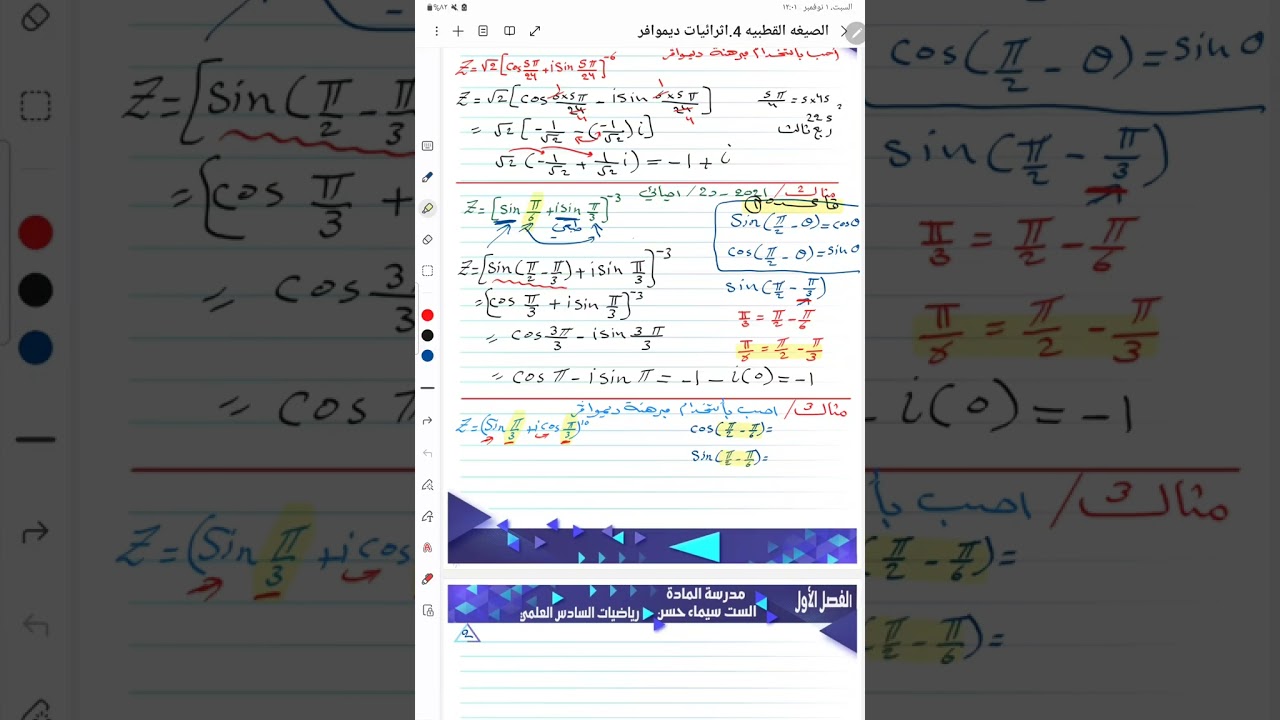 السبت، ١ نوفمبر ١٢:٠١
٨٢%
الصيغه القطبيه 4.اثرائيات ديموافر
احسب بأستخدام مبرهنة ديموافر
Z=√2[cos 5π/24 + i sin 5π/24]^-6
Z=√2[cos 6×5π/24 - i sin 6×5π/24]
5π/4 = 5×45 = 225
ربع ثالث
= √2[-1/√2 - (-1/√2)i]
√2(-1/√2 + 1/√2 i) = -1+i
مثال 2/ 2021 - د2/ احيائي
Z=[sin π/6 + i sin π/3]^-3
Sin(π/2 - θ)=cosθ
cos(π/2 - θ)=sinθ
Z=[sin(π/2 - π/3) + i sin π/3]^-3
sin(π/2 - π/3)
=[cos π/3 + i sin π/3]^-3
π/3 = π/2 - π/6
= cos 3π/3 - i sin 3π/3
π/6 = π/2 - π/3
= cosπ - i sinπ = -1 - i(0) = -1
مثال 3/ احسب بأستخدام مبرهنة ديموافر
Z=(Sin π/3 + i cos π/3)^10
cos(π/2 - π/6)=
Sin(π/2 - π/6)=
الفصل الأول
مدرسة المادة
الست سيماء حسن
رياضيات السادس العلمي
2